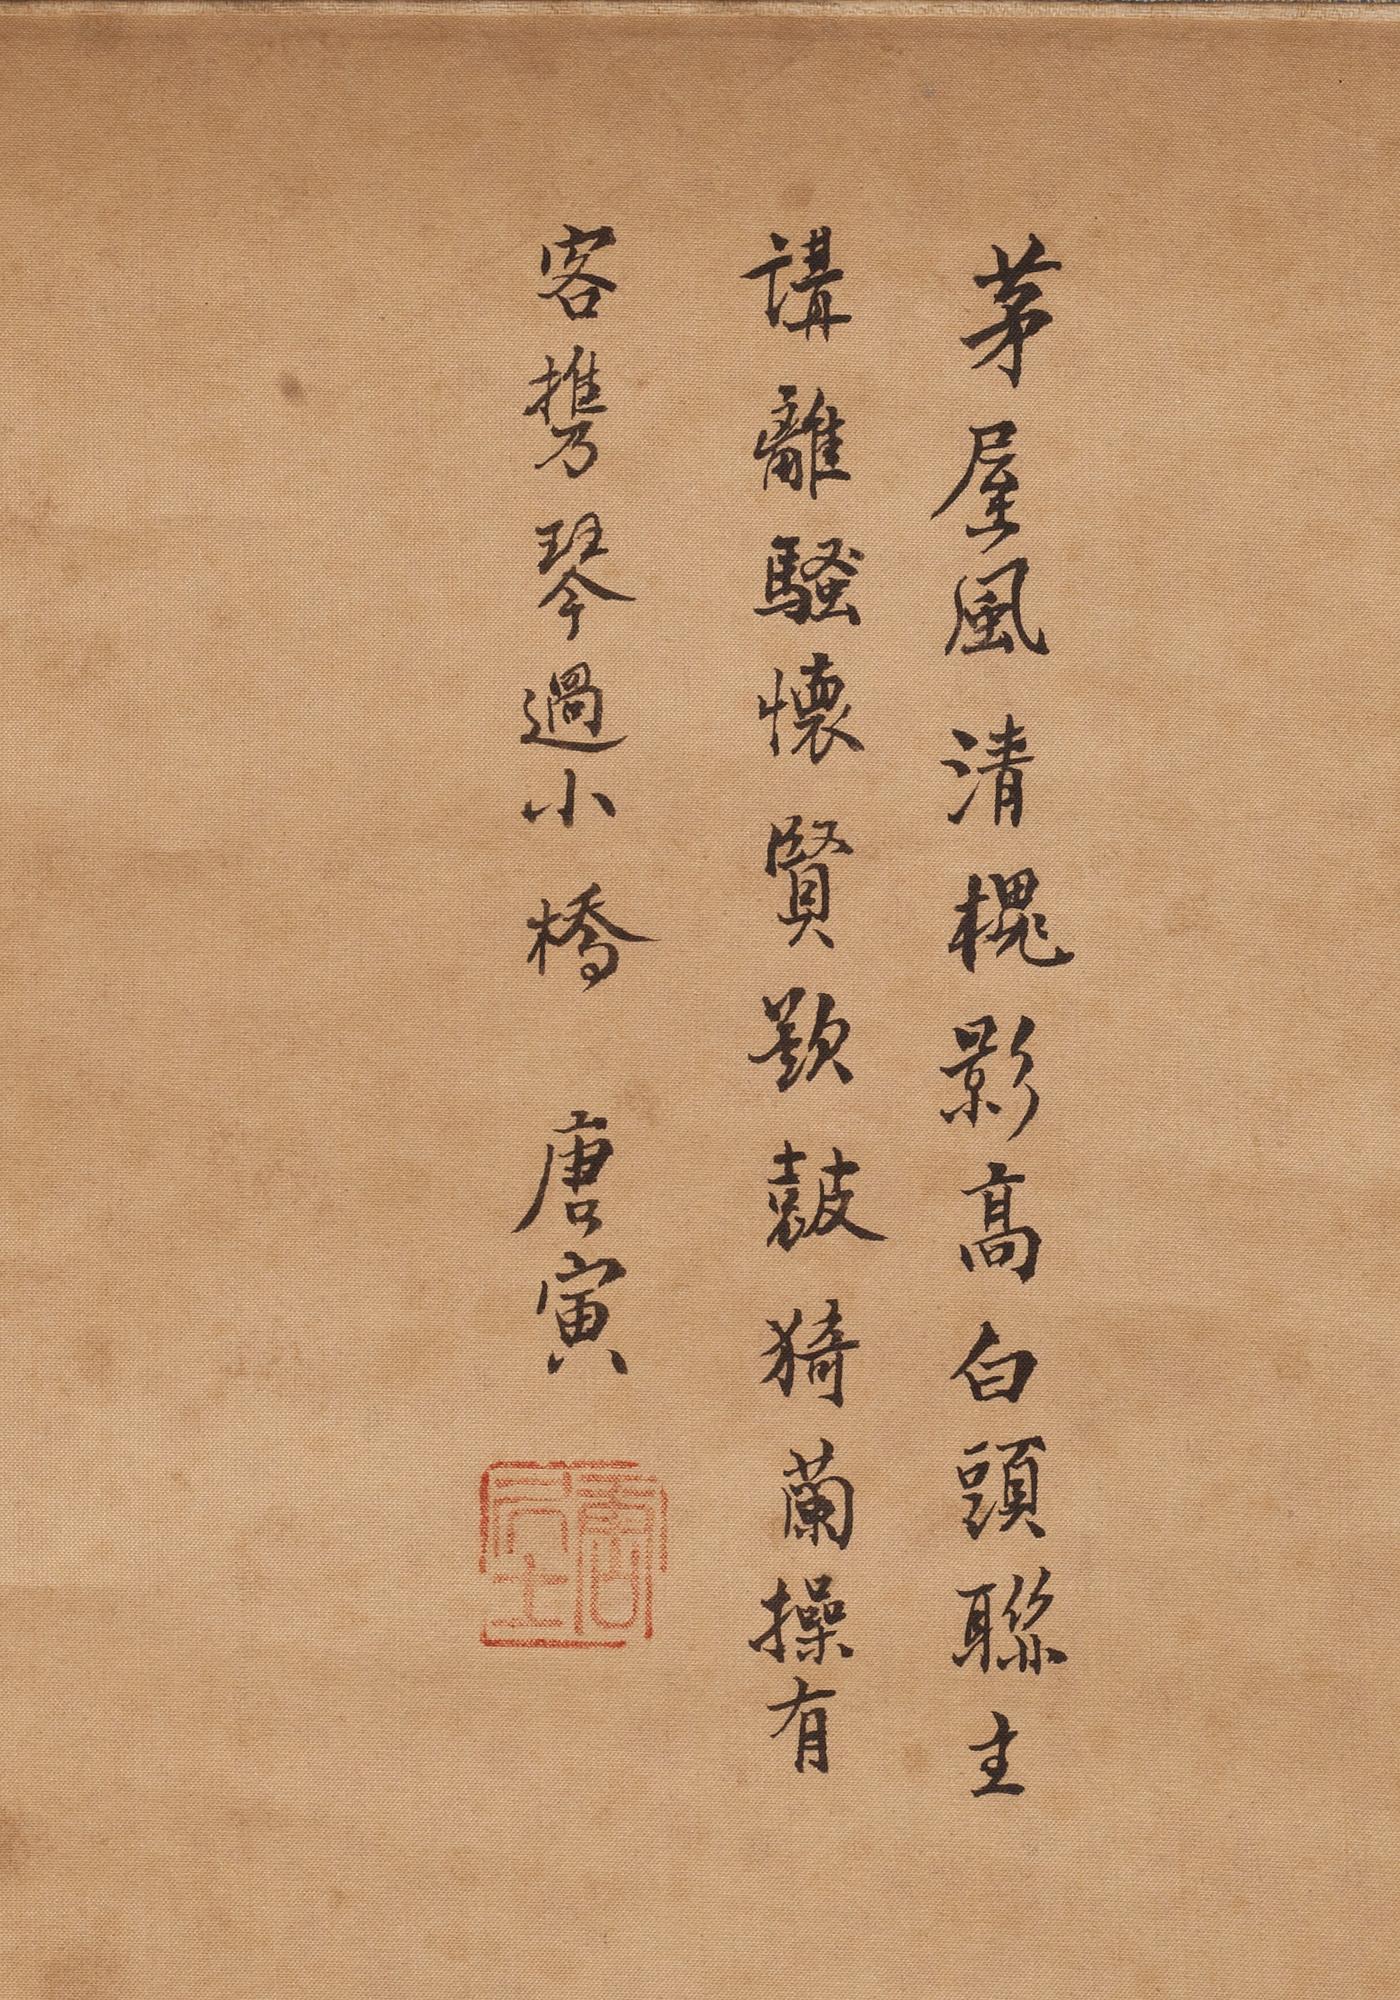 茅屋風清槐影高白頭聯主
講離騷懷賢歎鼓猗蘭操有
客攜琴過小橋　唐寅